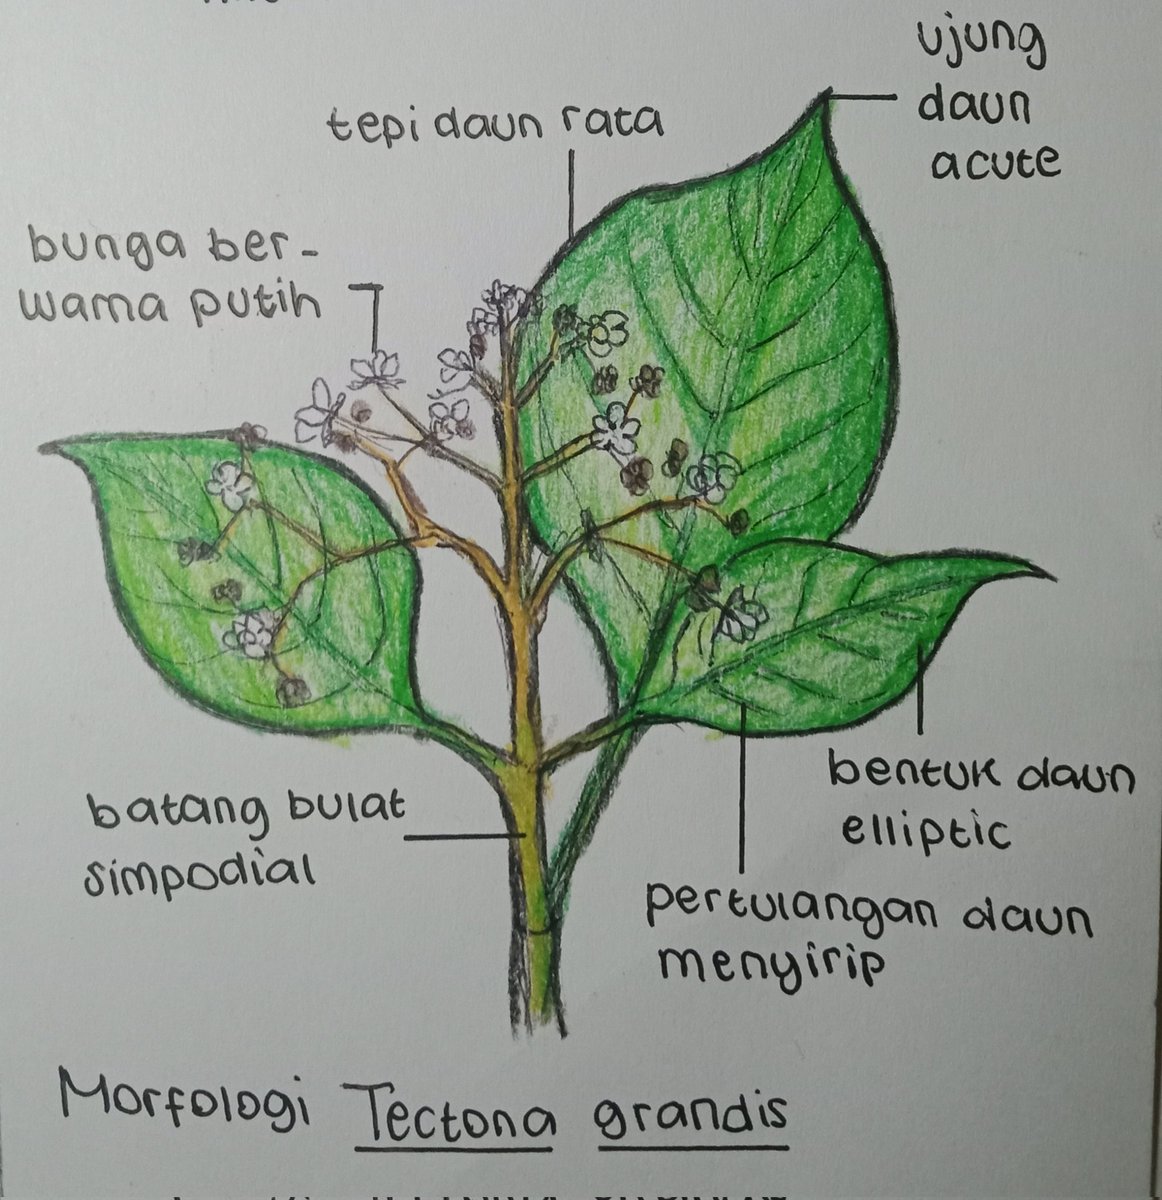 ujung
daun
acute
tepi daun rata
bunga ber-
warna putih
batang bulat
simpodial
bentuk daun
elliptic
pertulangan daun
menyirip
Morfologi Tectona grandis